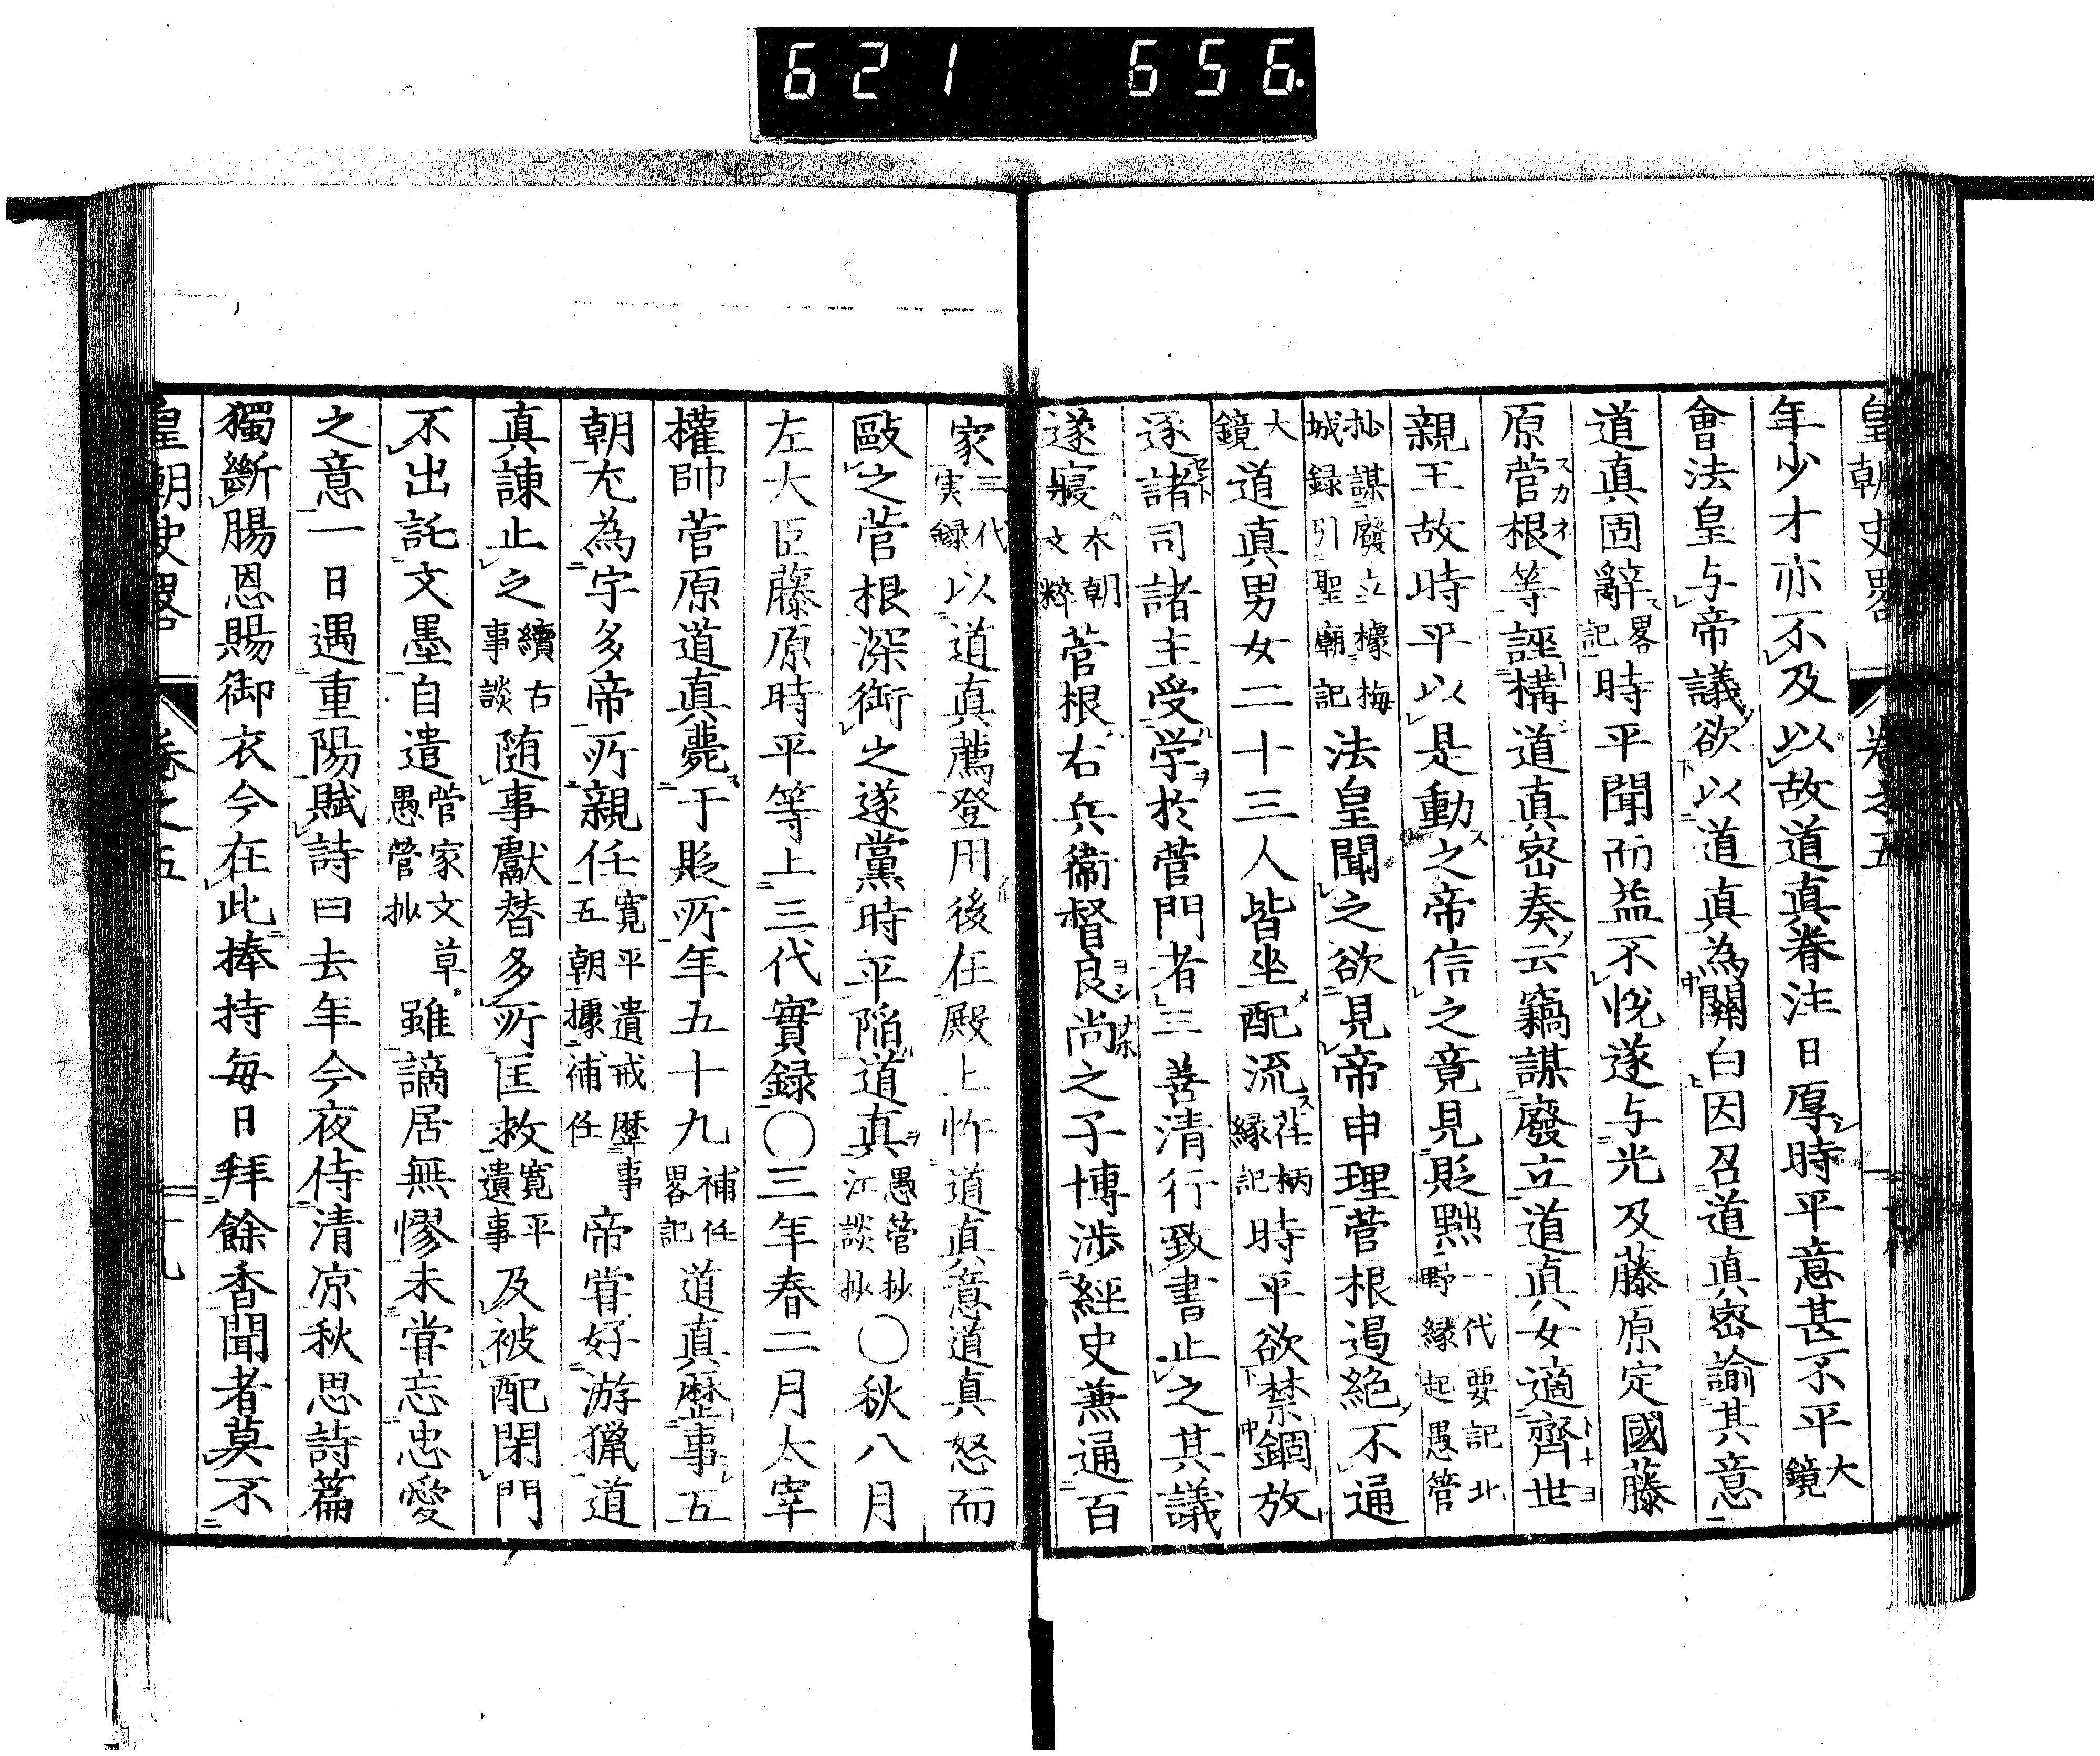 621 656.
皇朝史畧 卷之五
年少才亦不及以故道真眷注日厚時平意甚不平大鏡
會法皇与帝議欲以道真為關白因召道真密諭其意
道真固辭畧記時平聞而益不悅遂与光及藤原定國藤
原菅根等誣構道真密奏云竊謀廢立道真女適齊世
親王故時平以是動之帝信之竟見貶黜一代要記北野縁起愚管
抄謀廢立據梅城録引聖廟記法皇聞之欲見帝申理菅根遏絶不通
大鏡道真男女二十三人皆坐配流荏柄縁記時平欲禁錮放
逐諸司諸主受学於菅門者三善清行致書止之其議
遂寢本朝文粹菅根右兵衞督良尚之子博涉經史兼通百
家三代実録以道真薦登用後在殿上忤道真意道真怒而
毆之菅根深銜之遂黨時平陷道真愚管抄江談抄〇秋八月
左大臣藤原時平等上三代實録〇三年春二月太宰
權帥菅原道真薨于貶所年五十九補任畧記道真歷事五
朝尤為宇多帝所親任寛平遺戒歷事五朝據補任帝甞好游獵道
真諫止之續古事談随事獻替多所匡救寛平遺事及被配閉門
不出託文墨自遣菅家文草愚管抄雖謫居無憀未甞忘忠愛
之意一日遇重陽賦詩曰去年今夜侍清凉秋思詩篇
獨斷腸恩賜御衣今在此捧持每日拜餘香聞者莫不
皇朝史畧 卷之五 十九